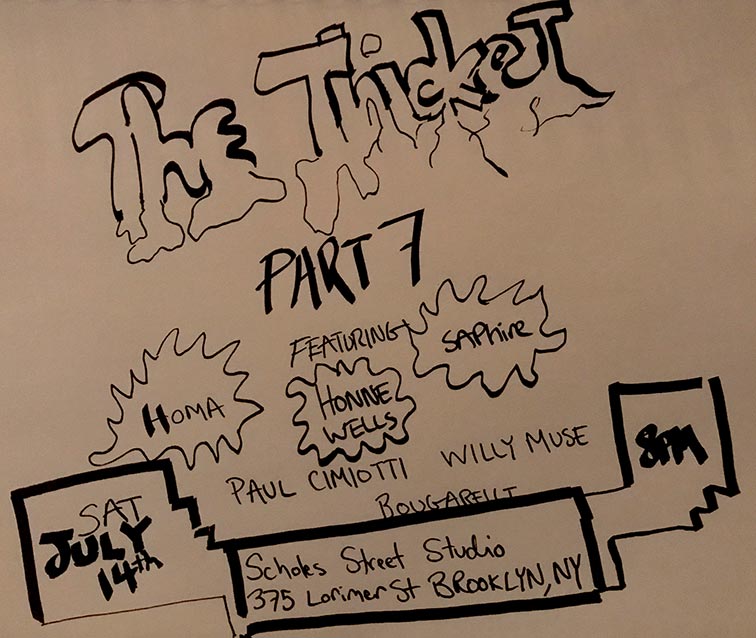 The Thicket
PART 7
FEATURING
SAPhire
HOMA
HONNE
WELLS
PAUL CIMIOTTI
WILLY MUSE
8PM
SAT
JULY
14th
Scholes Street Studio
375 Lorimer St BROOKLYN, NY